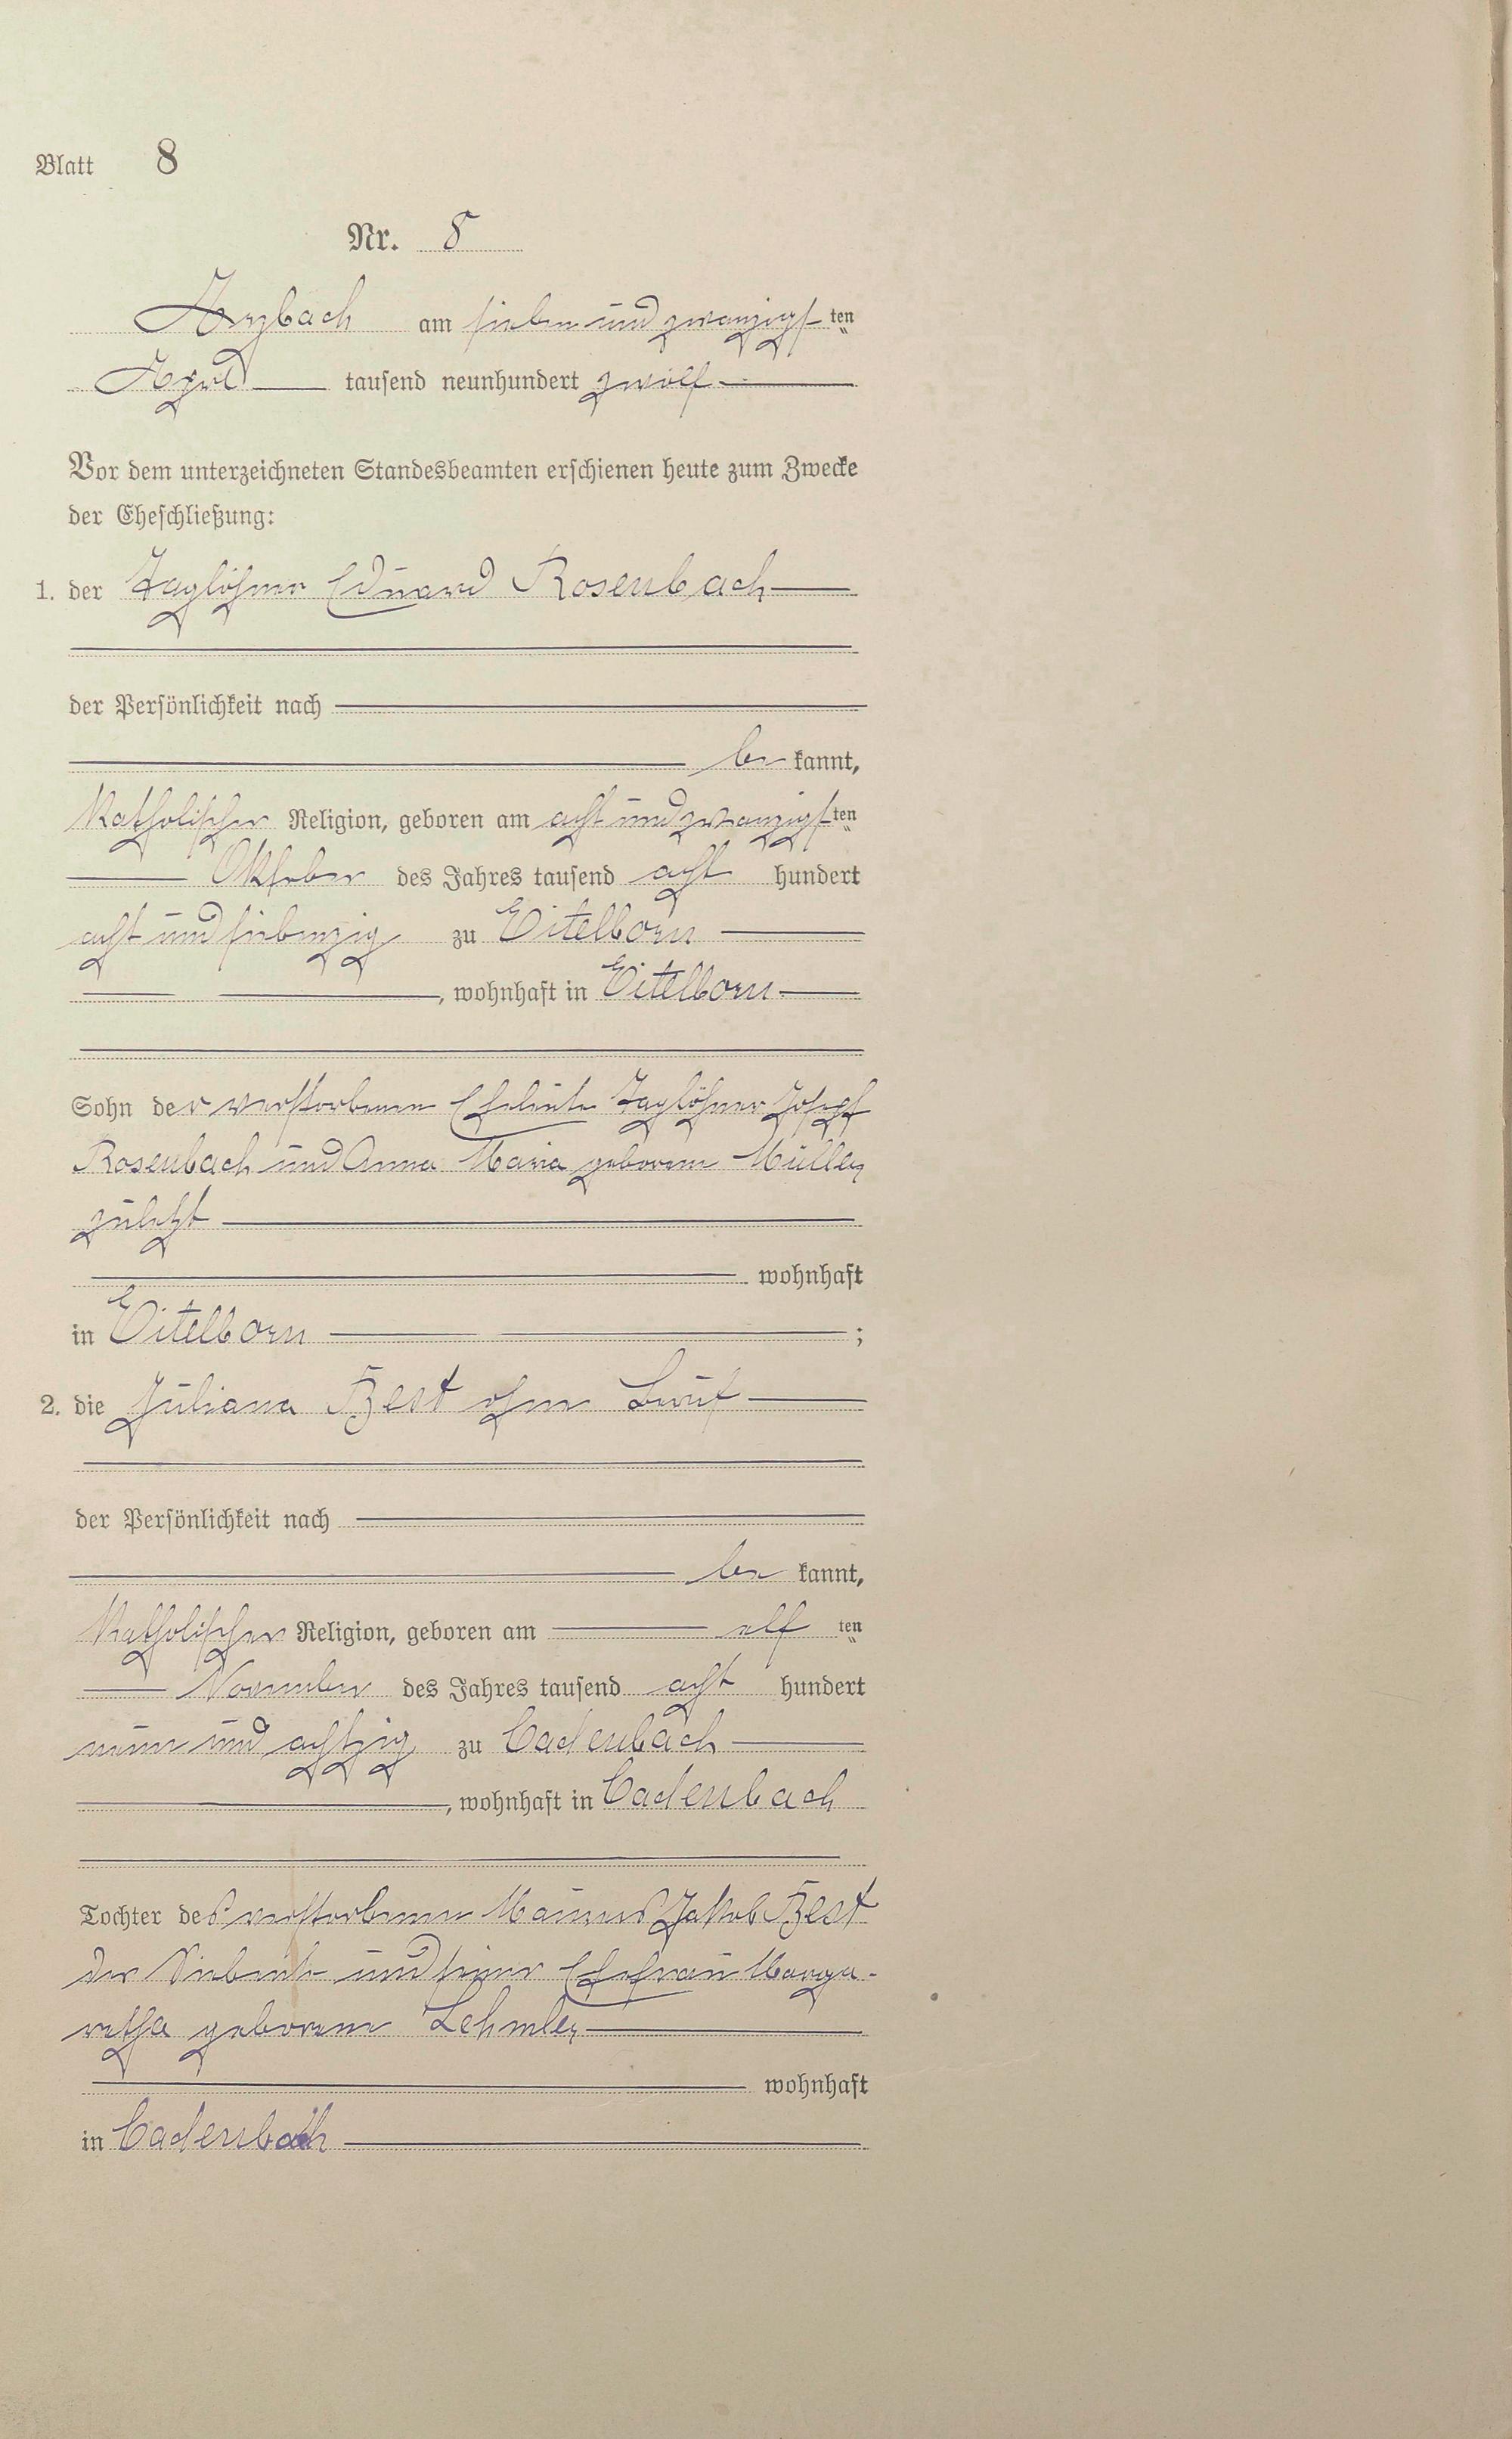 Blatt 8
Nr. 8
Arzbach am sieben und zwanzigsten
April tausend neunhundert zwölf
Vor dem unterzeichneten Standesbeamten erschienen heute zum Zwecke
der Eheschließung:
1. der Taglöhner Eduard Rosenbach
der Persönlichkeit nach
be kannt,
katholischer Religion, geboren am acht und zwanzigsten
Oktober des Jahres tausend acht hundert
acht und siebenzig zu Eitelborn
, wohnhaft in Eitelborn
Sohn der verstorbenen Eheleute Taglöhner Josef
Rosenbach und Anna Maria geborene Müller,
zuletzt
wohnhaft
in Eitelborn ;
2. die Juliana Best ohne Beruf
der Persönlichkeit nach
be kannt,
katholischer Religion, geboren am elf ten
November des Jahres tausend acht hundert
neun und achtzig zu Cadenbach
, wohnhaft in Cadenbach
Tochter des verstorbenen Jakob Best
der Siebente und seiner Ehefrau Marga-
retha geborene Lehmler,
wohnhaft
in Cadenbach